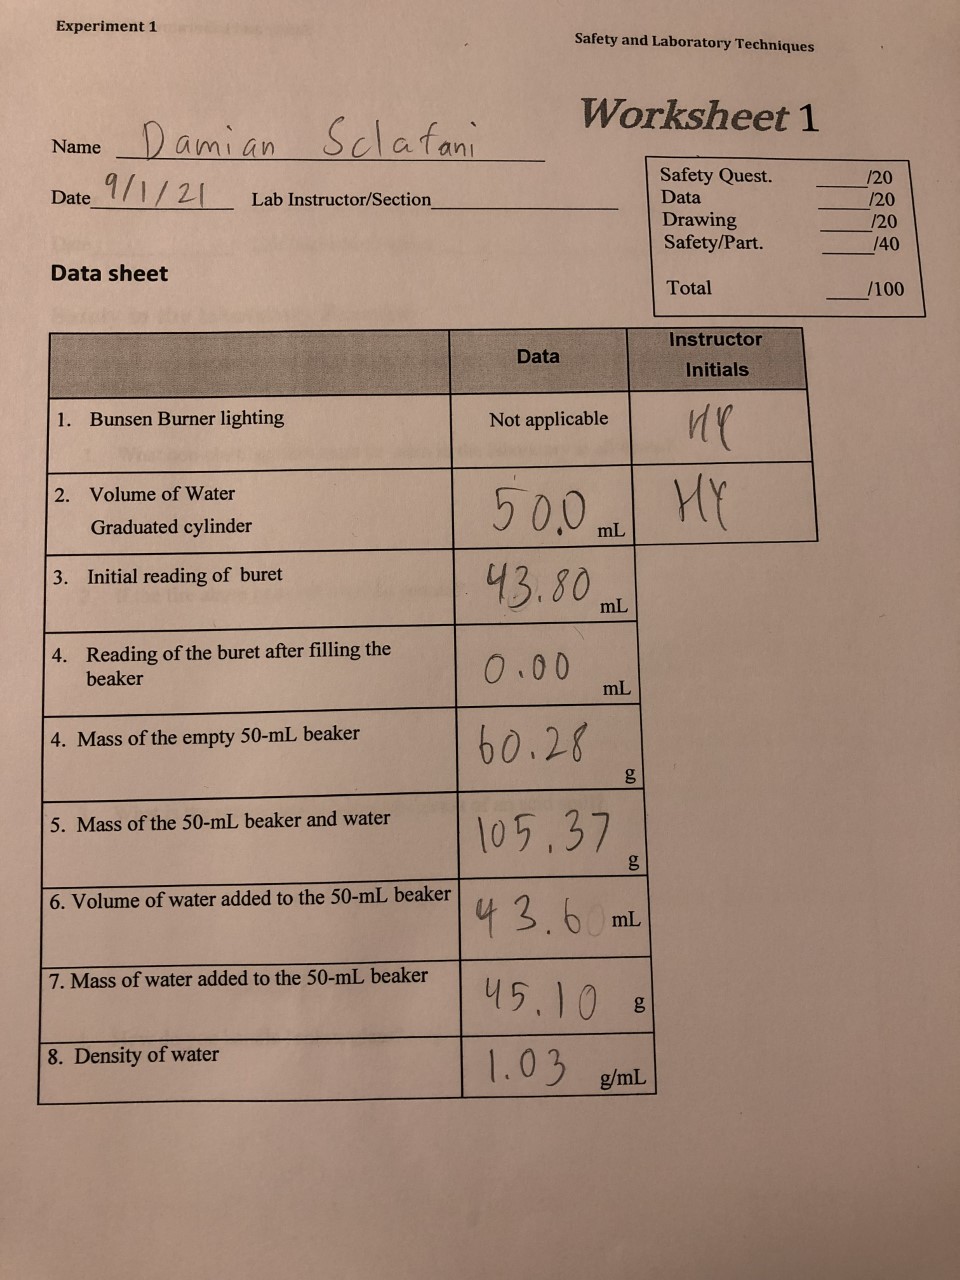 Experiment 1
Safety and Laboratory Techniques
Worksheet 1
Name Damian Sclafani
Date 9/1/21 Lab Instructor/Section
Safety Quest. /20
Data /20
Drawing /20
Safety/Part. /40
Total /100
Data sheet
Data
Instructor
Initials
1. Bunsen Burner lighting Not applicable HY
2. Volume of Water
Graduated cylinder 50.0 mL HY
3. Initial reading of buret 43.80 mL
4. Reading of the buret after filling the
beaker 0.00 mL
4. Mass of the empty 50-mL beaker 60.28 g
5. Mass of the 50-mL beaker and water 105.37 g
6. Volume of water added to the 50-mL beaker 43.6 mL
7. Mass of water added to the 50-mL beaker 45.10 g
8. Density of water 1.03 g/mL